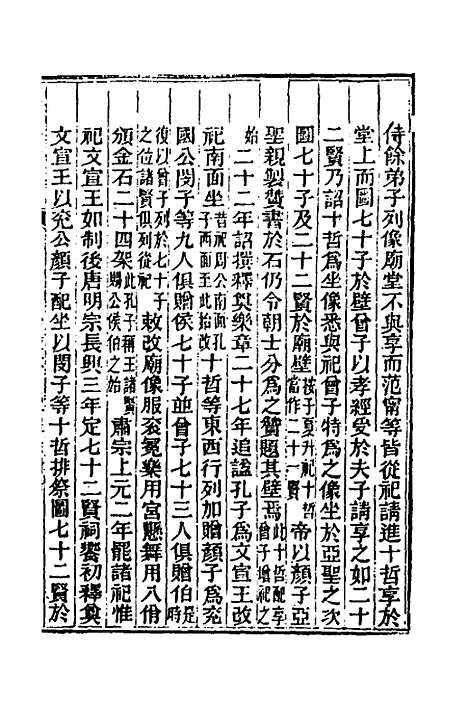 侍餘弟子列像廟堂不與享而范甯等皆從祀請進十哲享於
堂上而圖七十子於壁曾子以孝經受於夫子請享之如二十
二賢乃詔十哲爲坐像悉與祀曾子特爲之像坐於亞聖之次
圖七十子及二十二賢於廟壁按子夏升祀十哲當作二十一賢帝以顏子亞
聖親製贊書於石仍令朝士分爲之贊題其壁焉此十哲配享曾子增祀之
始二十二年詔撰釋奠樂章二十七年追諡孔子爲文宣王改
祀南面坐昔祀周公南面孔子西面王此始改十哲等東西行列加贈顏子爲兖
國公閔子等九人俱贈侯七十子並曾子七十三人俱贈伯是時
復以曾子列於七十子之位諸賢俱列從祀敕改廟像服衮冕樂用宮懸舞用八佾
頒金石二十四架此孔子稱王諸賢賜公侯伯之始肅宗上元二年罷諸祀惟
祀文宣王如制後唐明宗長興三年定七十二賢祠饗初釋奠
文宣王以兖公顏子配坐以閔子等十哲排祭圖七十二賢於